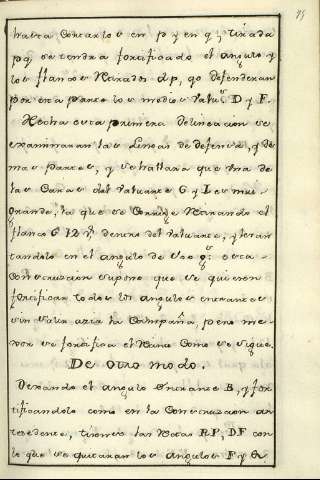 75
hasta cortarlos en p y en q, tirada
pq se tendra fortificado el angulo y
los flancos tirados dp, qo defenderan
por esta parte los medios Valu.s D y F.
Hecha esta primera delineacion se
examinaran las lineas de defensa, y de
mas partes, y se hallara que una de
las Caras del Valuarte G y I es mui
grande, la que se Corrige tirando el
flanco G 12 dentro del Valuarte, y levan
tandolo en el angulo de esta
Construccion supone que se quieren
fortificar todos los angulos entrantes
sin salir azia la Campaña, pero me
xor se fortifica el Plano como se sigue.
De otro modo.
Dexando el angulo entrante B, y for
tificandolo como en la Construccion an
tecedente, tirense las Rectas RP, DF con
lo que se quitaran los angulos F y Q.